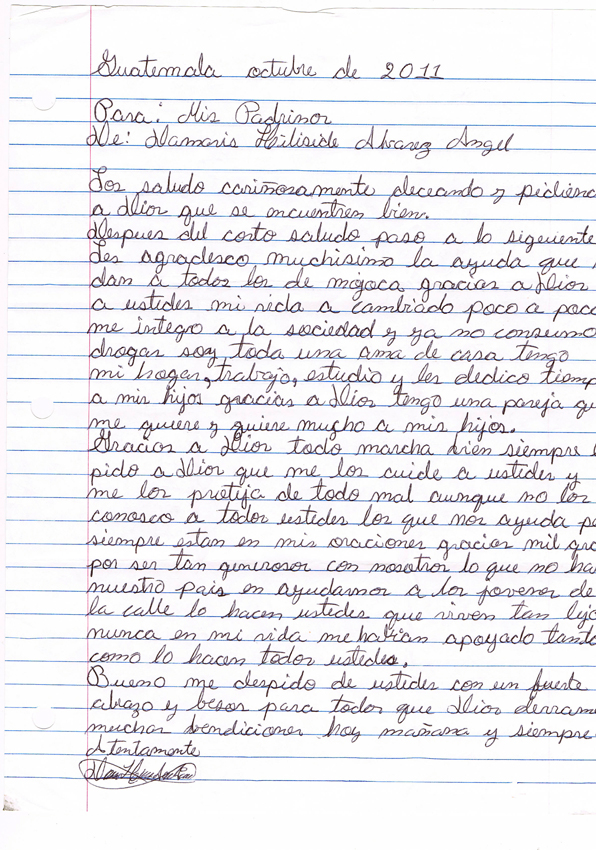 Guatemala octubre de 2011
Para: Mis Padrinos
De: Damaris Alvarez Angel
Los saludo cariñosamente deceando y pidienc
a Dios que se encuentren bien.
Despues del corto saludo paso a lo sigeuiente
Les agradesco muchisimo la ayuda que
dan a todos los de mojoca gracias a Dios
a ustedes mi vida a cambiado poco a poco
me integro a la sociedad y ya no consumo
drogas soy toda una ama de casa tengo
mi hogar, trabajo, estudio y les dedico tiemp
a mis hijos gracias a Dios tengo una pareja qu
me quiere y quiere mucho a mis hijos.
Gracias a Dios todo marcha bien siempre
pido a Dios que me los cuide a ustedes y
me los protija de todo mal aunque no los
conosco a todos ustedes los que nos ayuda pe
siempre estan en mis oraciones gracias mil gra
por ser tan generosos con nosotros lo que no ha
nuestro pais en ayudarnos a los jovenes de
la calle lo hacen ustedes que viven tan lejo
nunca en mi vida me habian apoyado tanto
como lo hacen todos ustedes.
Bueno me despido de ustedes con un fuerte
abrazo y besos para todos que Dios derrame
muchas bendiciones hoy mañana y siempre
Atentamente